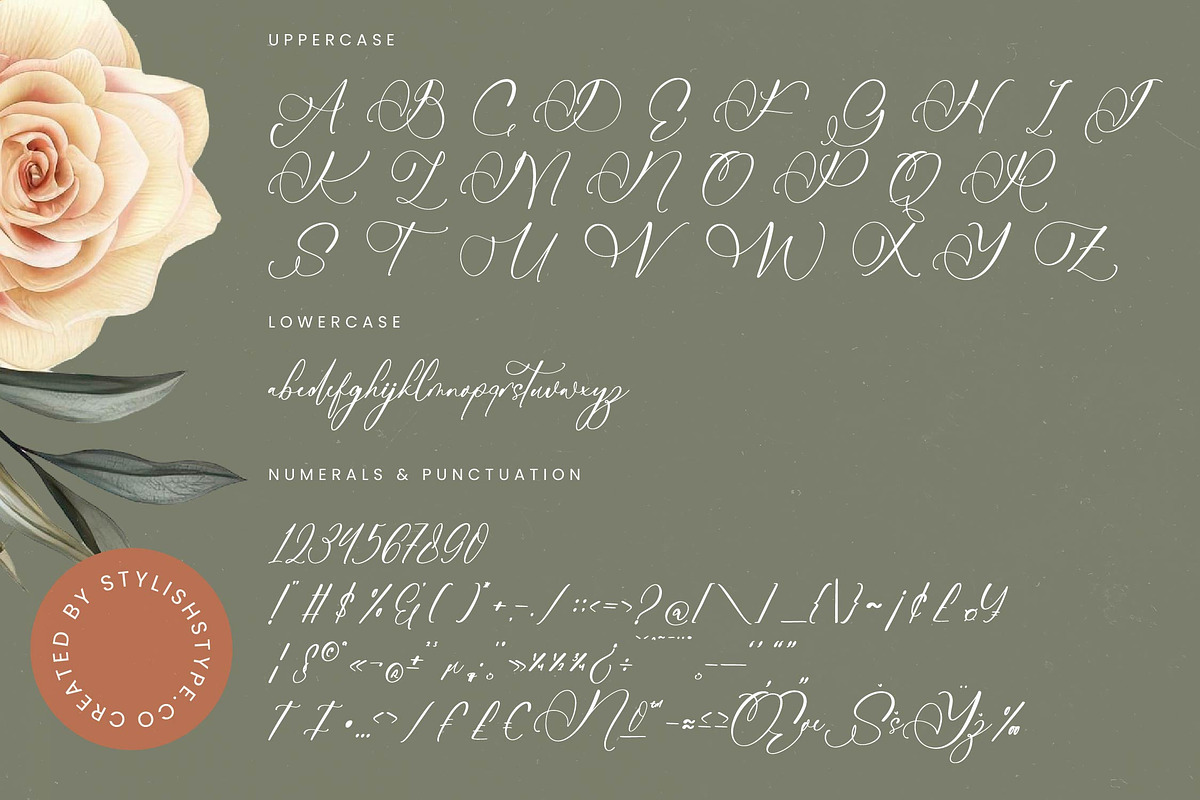 UPPERCASE
A B C D E F G H I J
K L M N O P Q R
S T U V W X Y Z
LOWERCASE
abcdefghijklmnopqrstuvwxyz
NUMERALS & PUNCTUATION
1234567890
! " # $ % & ' ( ) * + , - . / : ; < = > ? @ [ \ ] _ { | } ~ ¡ ¢ £ ¤ ¥
¦ § © ª « ¬ ® ± ² ³ µ ¶ · ¸ º » ¼ ½ ¾ ¿ ÷ – — ‘ ’ “ ”
† ‡ • … ‹ › ⁄ ₣ ₤ € № ™ − ≈ ≤ ≥
CREATED BY STYLISHSTYPE.CO